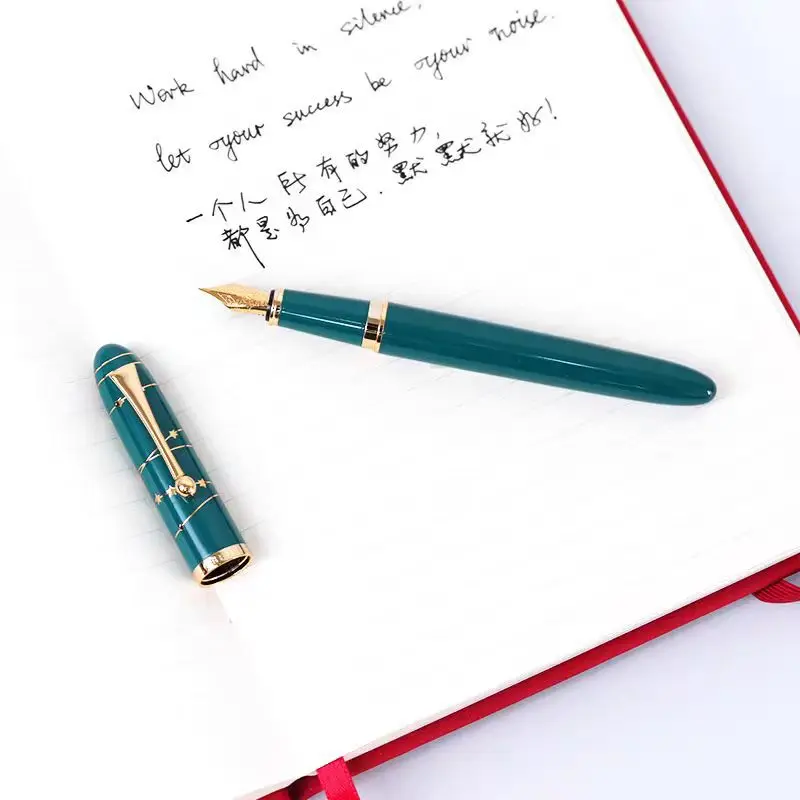 Work hard in silence,
let your success be your noise.
一个人所有的努力,
都是为自己.默默就好!